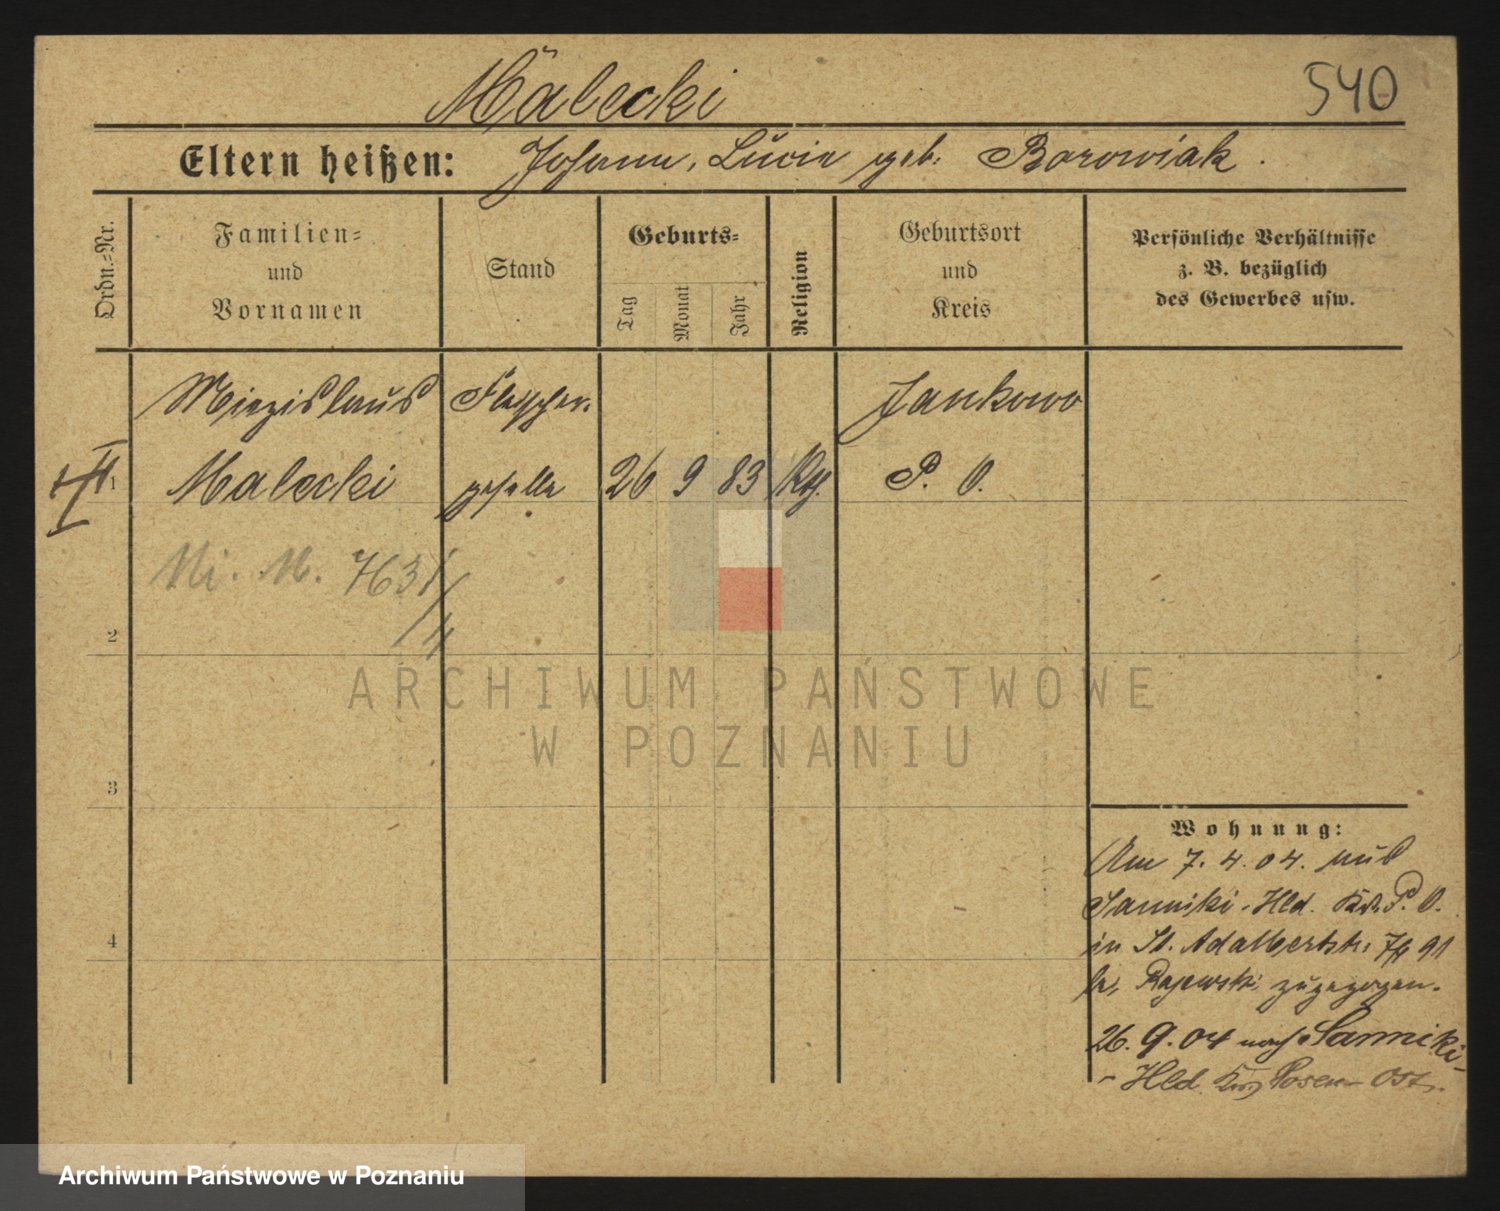 Malecki
540
Eltern heißen: Johann, Lucie geb. Borowiak.
Ordn.-Nr.
Familien- und Vornamen
Stand
Geburts-
Tag
Monat
Jahr
Religion
Geburtsort und Kreis
Persönliche Verhältnisse
z. B. bezüglich
des Gewerbes usw.
Miezislaus Fleischer- Jankowo
1 Malecki geselle 26 9 83 Kth. P. O.
Mi. M. 7631/4
2
ARCHIWUM PAŃSTWOWE
W POZNANIU
3
Wohnung:
Am 7. 4. 04. aus
Sanniki-Hld. Krs. P. O.
in St. Adalbertstr. 91
4
bei Rajewski zugezogen.
26. 9. 04 nach Sanniki
-Hld. Krs. Posen-Ost.
Archiwum Państwowe w Poznaniu